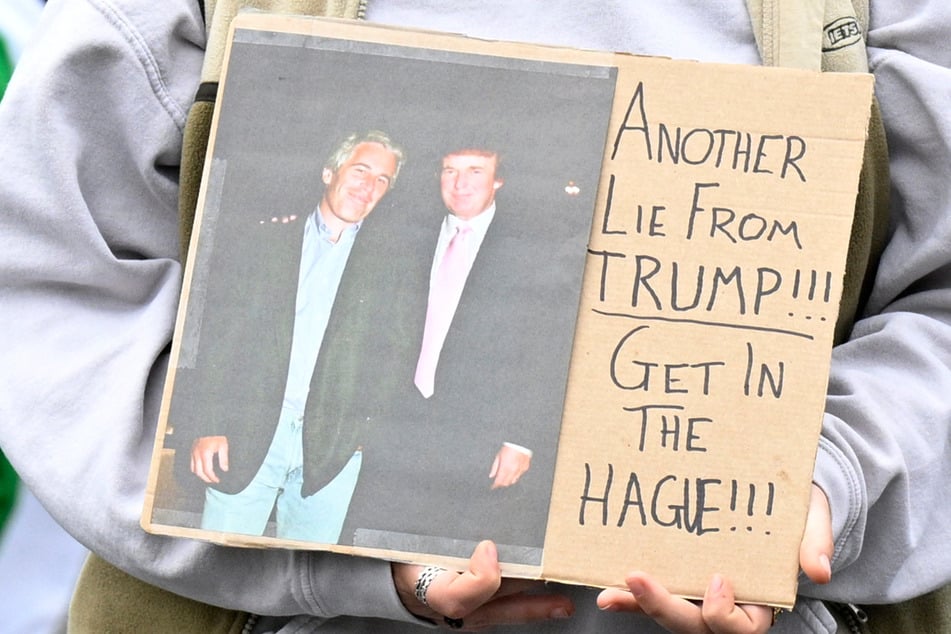 ANOTHER
LIE FROM
TRUMP!!!
GET IN
THE
HAGUE!!!